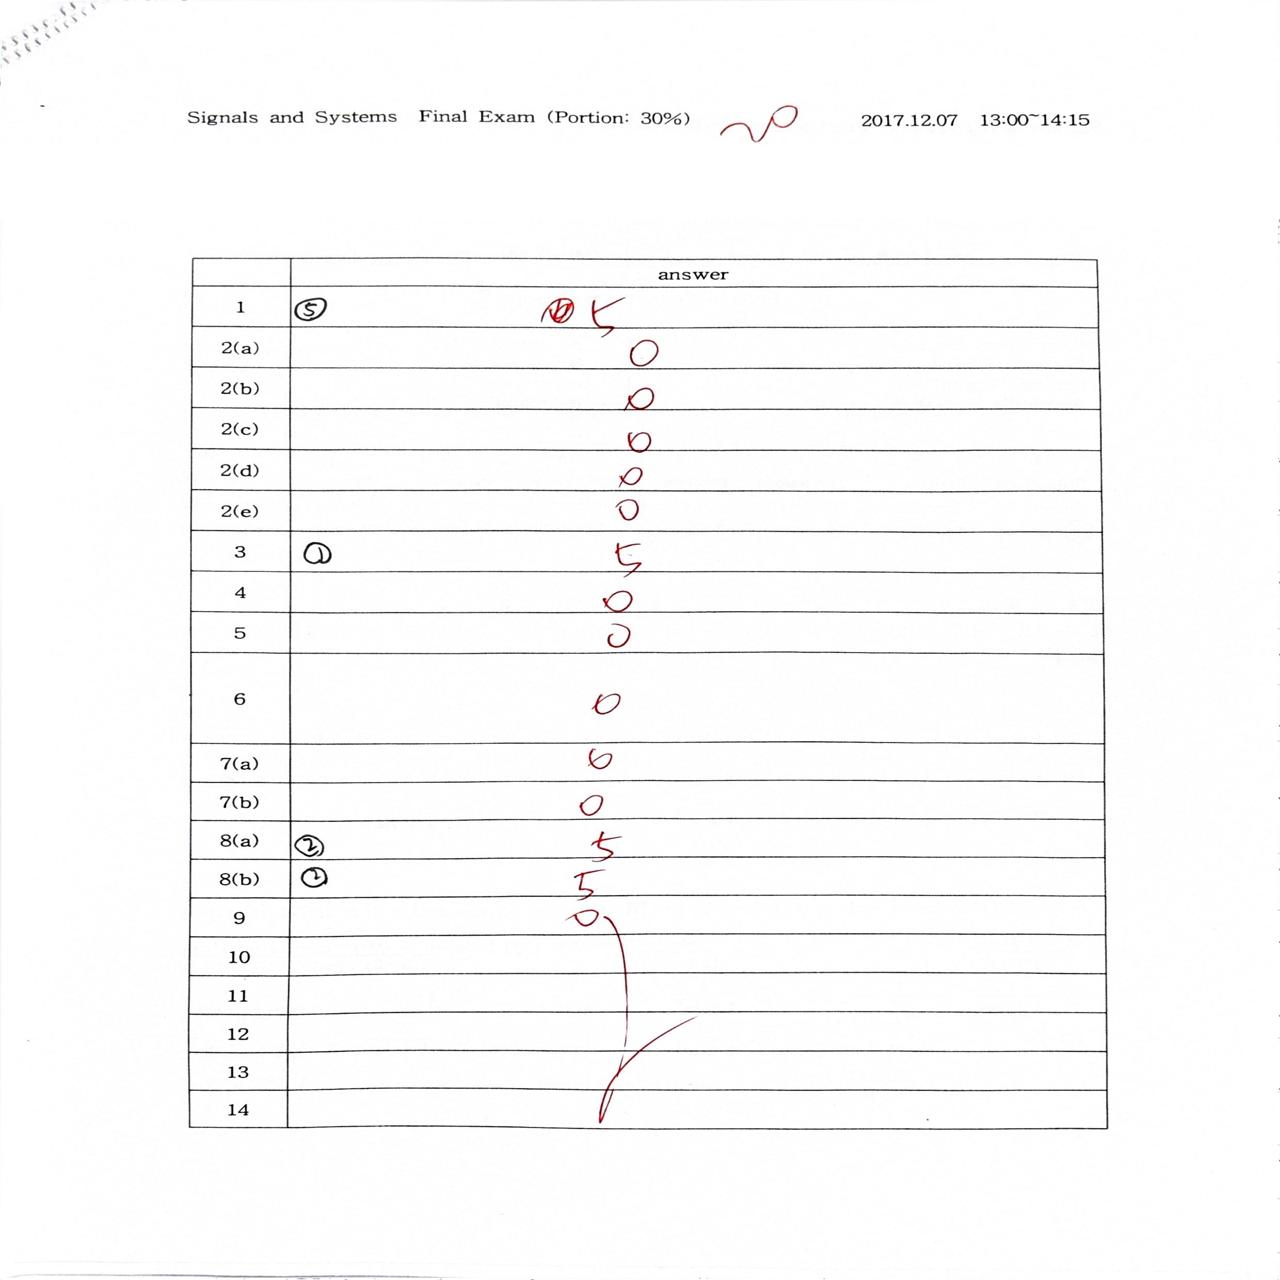 Signals and Systems Final Exam (Portion: 30%) 20 2017.12.07 13:00~14:15
answer
1 ⑤ 5
2(a) 0
2(b) 0
2(c) 0
2(d) 0
2(e) 0
3 ① 5
4 0
5 0
6 0
7(a) 0
7(b) 0
8(a) ② 5
8(b) ② 5
9 0
10
11
12
13
14